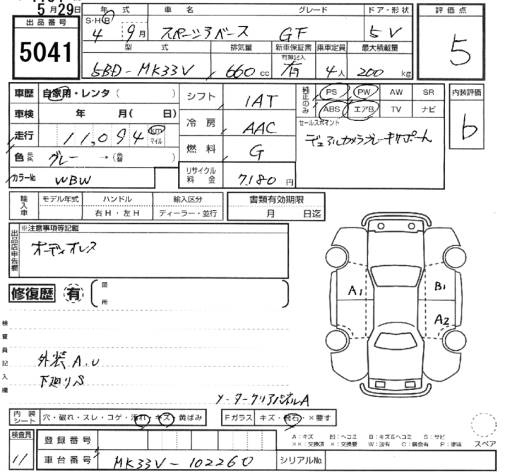 5月29日
出品番号
5041
S・H・R 年式 車名 グレード ドア・形状 評価点
4 9月 スペーシアベース GF 5V
5
型式 排気量 新車保証書 有無記入 乗車定員 最大積載量
5BD-MK33V 660cc 有 4人 200kg
車歴 自家用・レンタ( )
車検 年 月( )
走行 11,094 km マイル
色 グレー →( )
カラーNo. WBW
シフト 1AT
冷房 AAC
燃料 G
リサイクル料金 7,180円
純正のみ PS PW AW SR
ABS エアB TV ナビ
内装評価
b
セールスポイント
デュアルカメラブレーキサポート
輸入車 モデル年式 ハンドル 輸入区分
右H・左H ディーラー・並行
書類有効期限
月 日迄
出品店申告欄
※注意事項等記載
オーディオレス
修復歴 有 箇所
検査員記入欄
外装A.U
下廻りS
メータークリアパネルA
A1 B1
A2
内装シート 穴・破れ・スレ・コゲ・汚れ・キズ・黄ばみ
Fガラス キズ・飛石・×要す
スペア
検査員
登録番号
車台番号 MK33V-102260
シリアルNo.